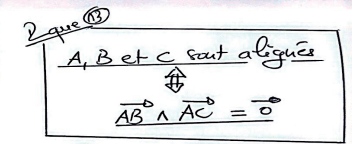 Rque 13
A, B et C sont alignés
⇕
AB ∧ AC = 0